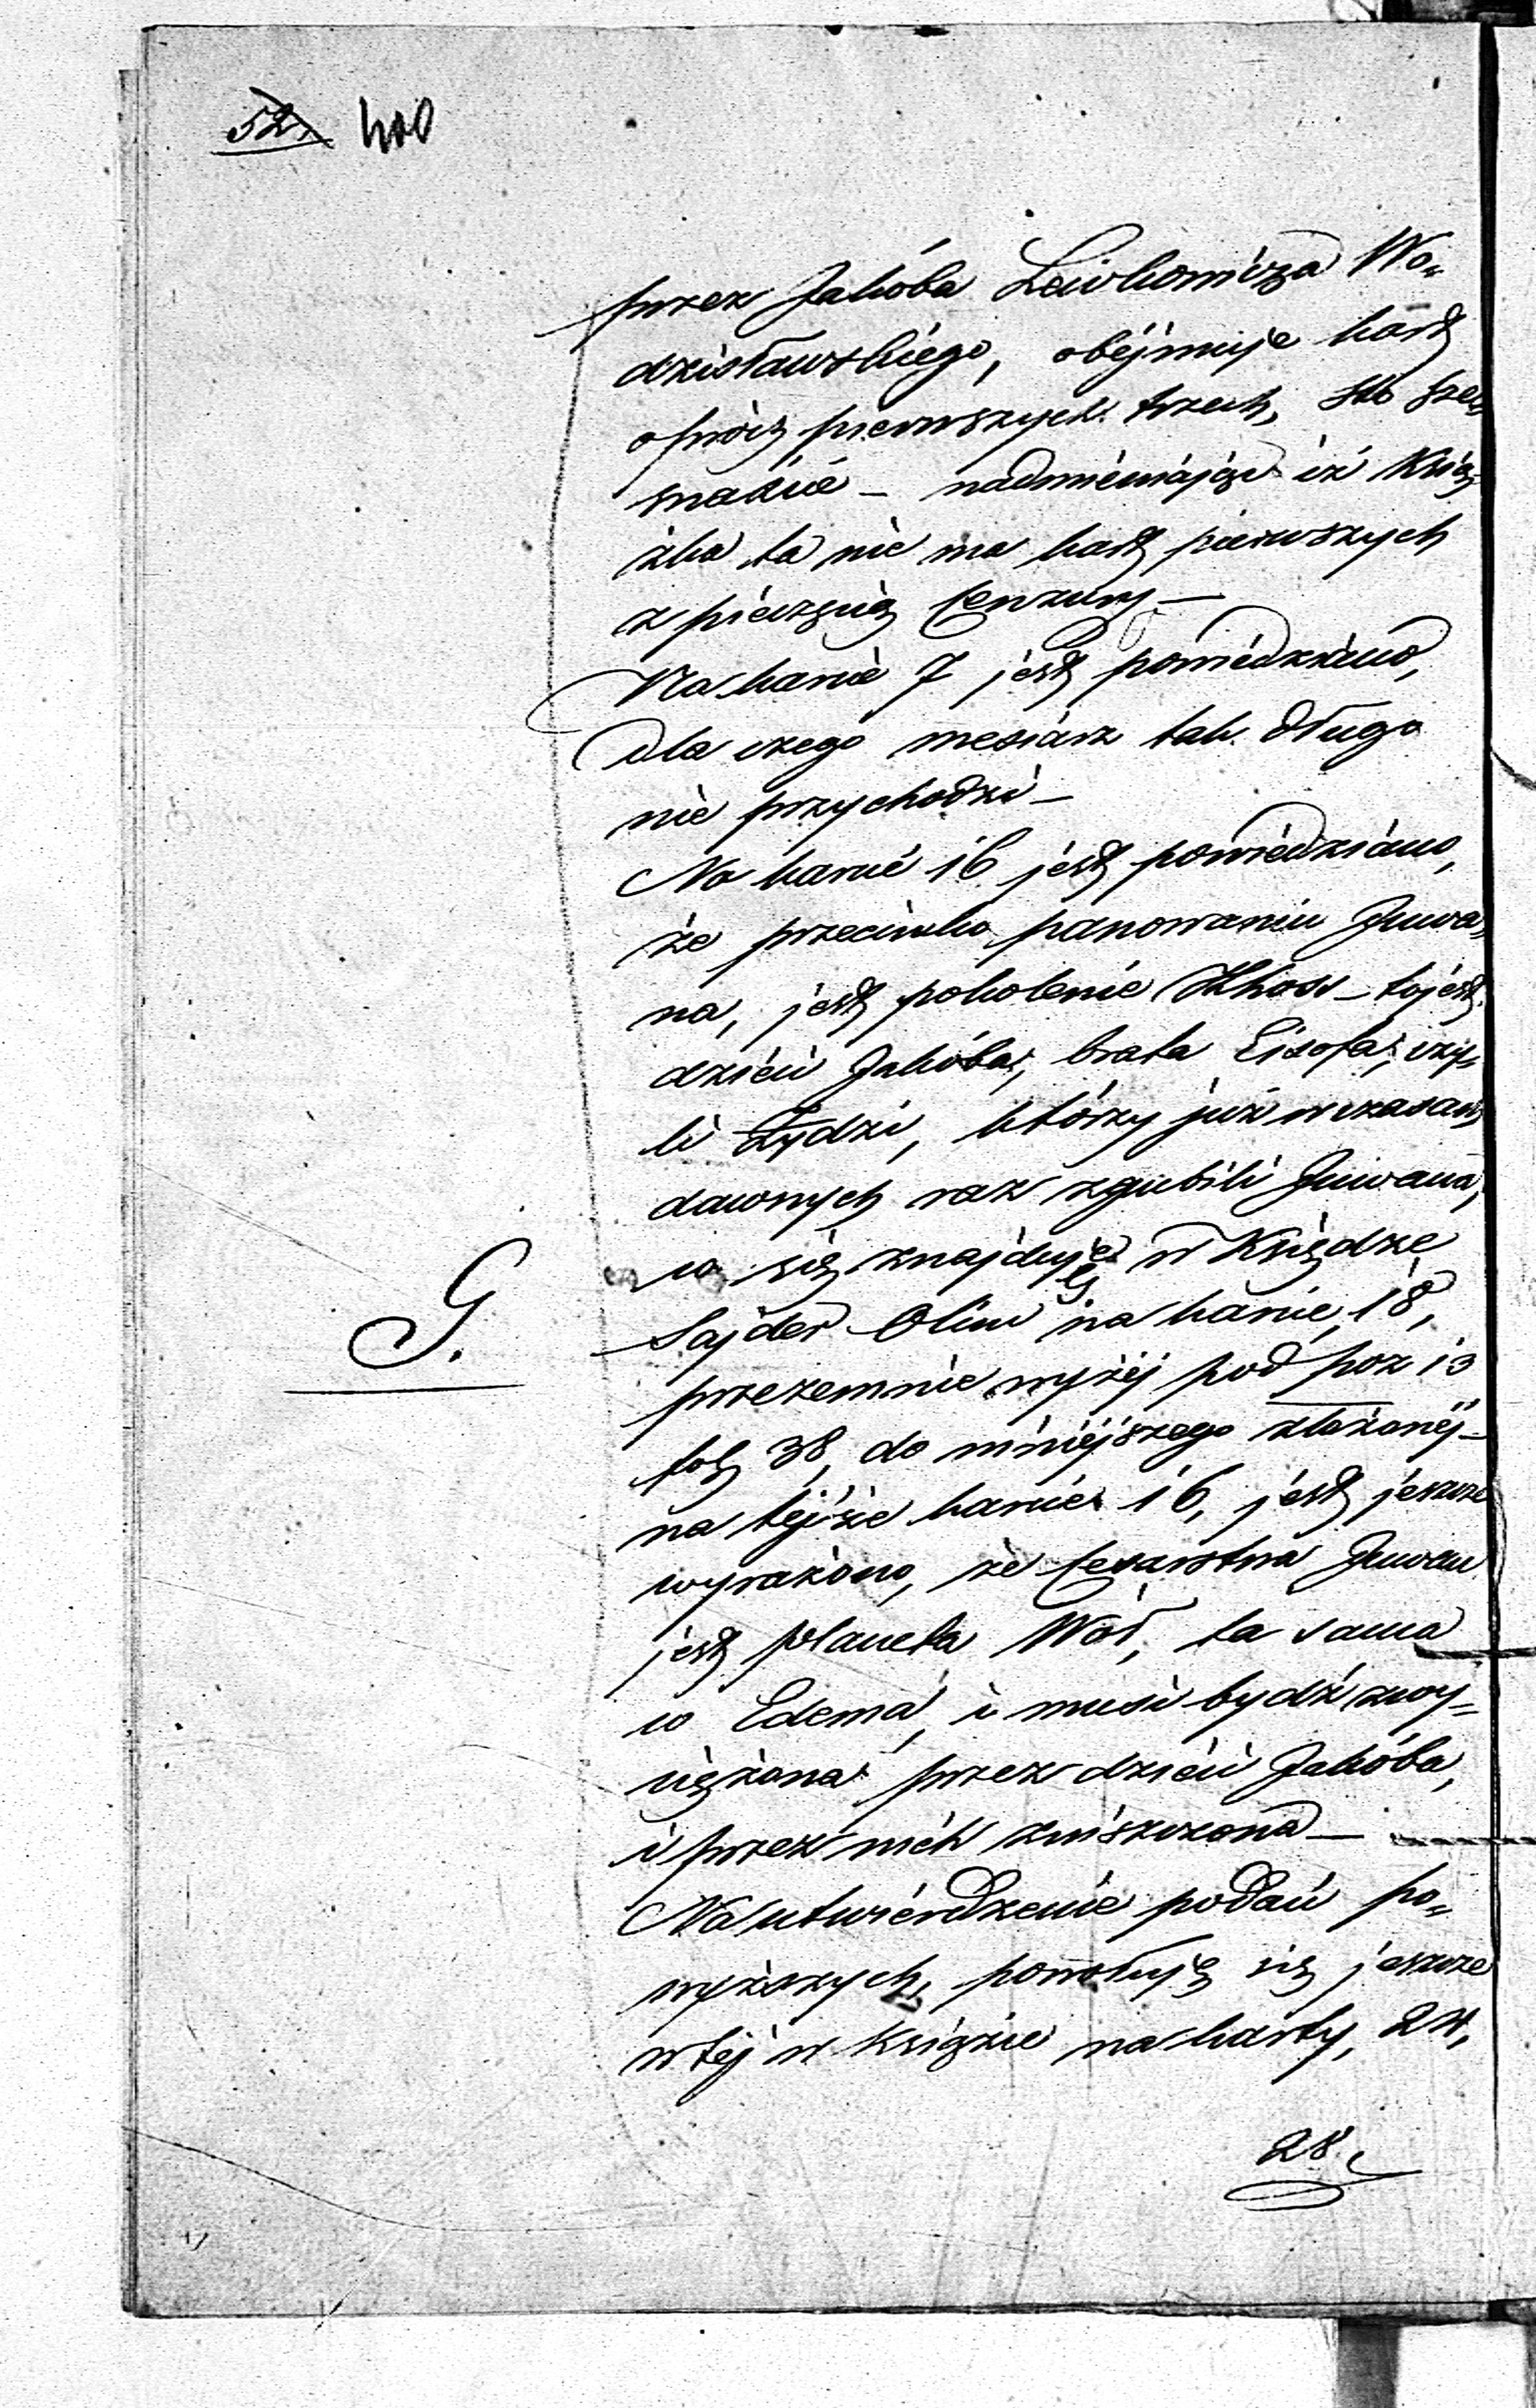 52. 400
przez Jakóba Lewkowicza Wo„
dzisławskiego, obéjmuje kart
oprócz pierwszych trzech, sto sze„
snaście – nadmieniając iż Ksią„
żka ta nie ma kart pierwszych
z pieczęcią Cenzury –
Na karcie 7 jest powiedziano,
dla czego mesiasz tak długo
nie przychodzi –
Na karcie 16 jest powiedziano,
że przeciwko panowaniu Juwa„
na, jest pokolenie – tojest
dzieci Jakóba, brata Eisofa, czy„
li Żydzi, którzy już w czasach
dawnych raz zgubili Juwana,
co się znajduje w Księdze
Sajder Olim na karcie 18,
G.
przezemnie wyżéj pod poz 13
fol 38, do niniéjszego złożonéj –
na téjże karcie 16, jest jeszcze
wyrażono, że Cesarstwa Juwan
jest planeta Wół, ta sama
co Edema, i musi bydź zwy„
ciężona przez dzieci Jakóba,
i przez nich zniszczona –
Na utwierdzenie podań po„
wyższych, powołuję się jeszcze
w téj w Książce na karty, 24,
28.